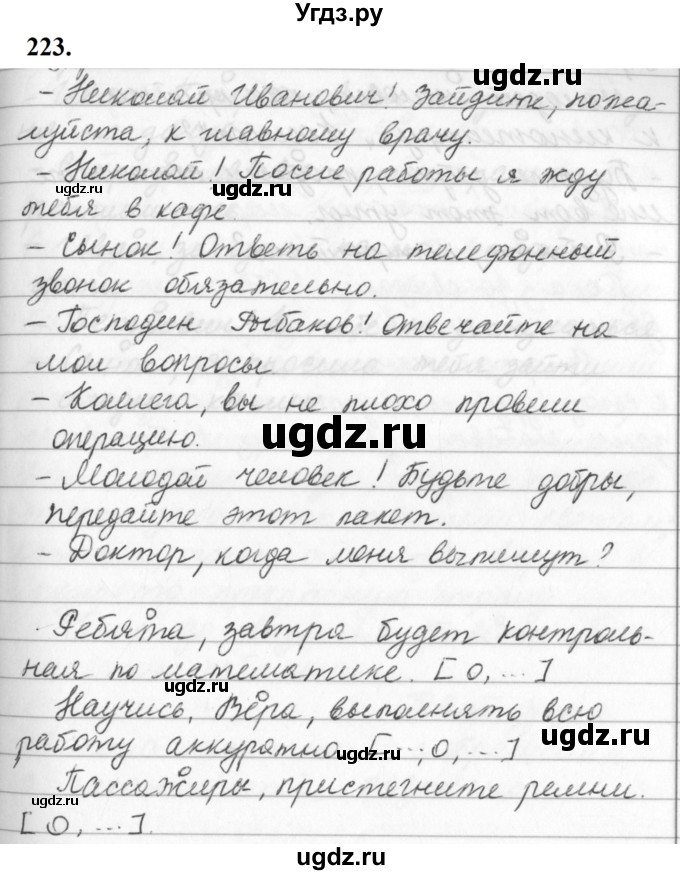 Угдз.ру
223.
- Николай Иванович! Зайдите, пожа-
луйста, к главному врачу.
- Николай! После работы я жду
ugdz.ru ugdz.ru
тебя в кафе
- Сынок! Ответь на телефонный
звонок обязательно.
- Господин Рыбаков! Отвечайте на
мои вопросы
- Коллега, вы не плохо провели
операцию.
ugdz.ru
- Молодой человек! Будьте добры,
передайте этот пакет.
- Доктор, когда меня выпишут?
Ребята, завтра будет контроль-
ная по математике. [О, ...]
ugdz.ru
Научись, Вера, выполнять всю
ugdz.ru
работу аккуратно [..., О, ...]
ugdz.ru
Пассажиры, пристегните ремни.
ugdz.ru
[О, ...].
ugdz.ru